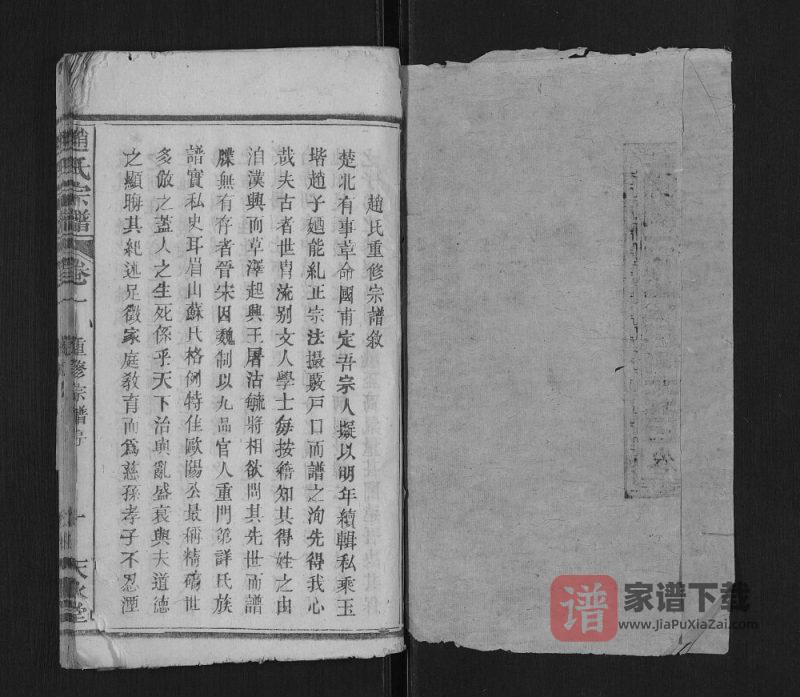 趙氏重修宗譜敘
楚北有事革命國甫定吾宗人擬以明年續輯私乘玉
堦趙子廼能糾正宗法撮嚴戶口而譜之洵先得我心
哉夫古者世冑流别文人學士每按籍知其得姓之由
洎漢興而草澤起興王屠沽毓將相欲問其先世而譜
牒無有存者晉宋因魏制以九品官人重門第詳氏族
譜實私史耳眉山蘇氏格例特佳歐陽公最稱精確世
多倣之蓋人之生死係乎天下治與亂盛衰與夫道德
之顯晦其紀述足徵家庭教育而爲慈孫孝子不忍湮
趙氏宗譜
卷一
重修宗譜序
一
天水堂
谱
家谱下载
www.JiaPuXiaZai.com